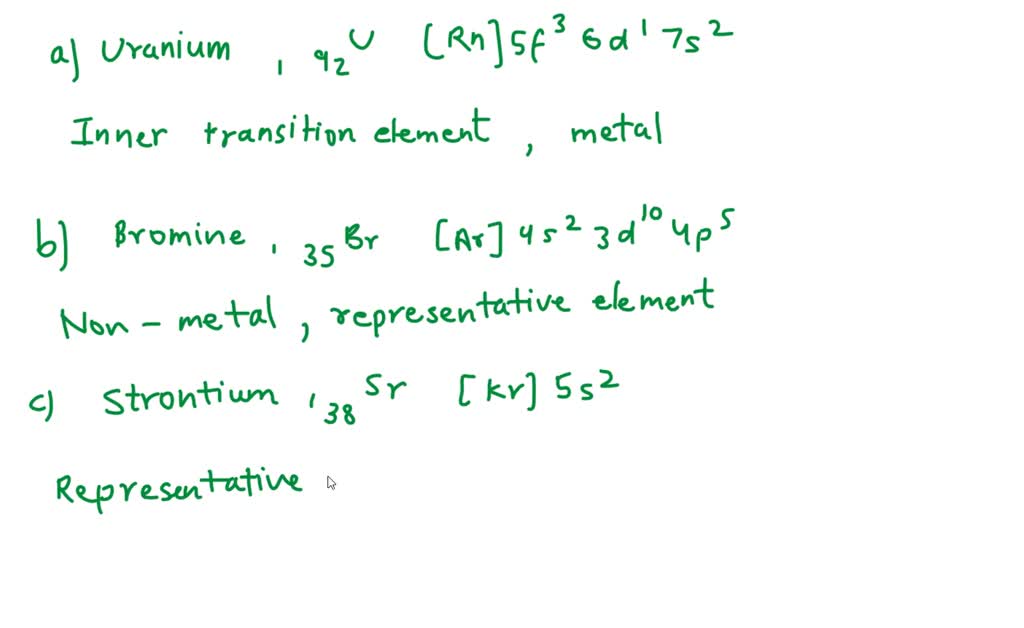 a) Uranium , ₉₂U [Rn] 5f³ 6d¹ 7s²
Inner transition element , metal
b) Bromine , ₃₅Br [Ar] 4s² 3d¹⁰ 4p⁵
Non - metal , representative element
c) Strontium , ₃₈Sr [Kr] 5s²
Representative